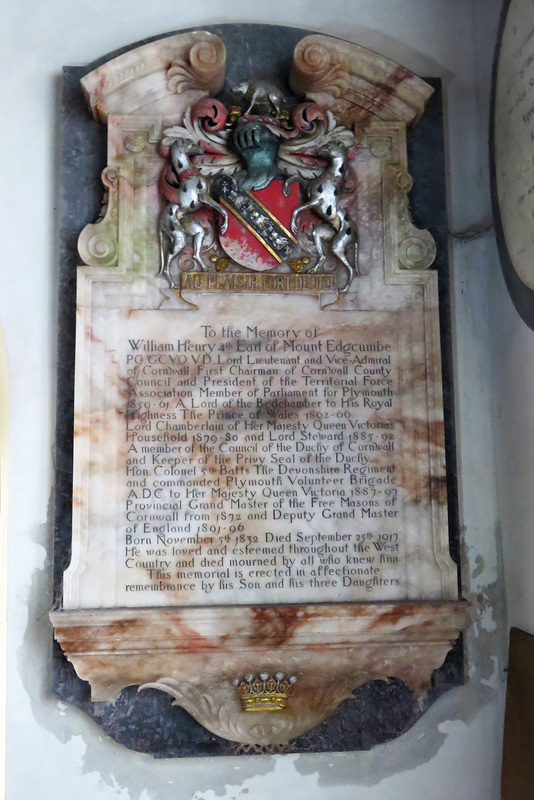 AU PLAISIR FORT DE DIEU
To the Memory of
William Henry 4th Earl of Mount Edgcumbe
P.C. G.C.V.O. V.D. Lord Lieutenant and Vice-Admiral
of Cornwall First Chairman of Cornwall County
Council and President of the Territorial Force
Association Member of Parliament for Plymouth
1859-61 A Lord of the Bedchamber to His Royal
Highness The Prince of Wales 1862-66,
Lord Chamberlain of Her Majesty Queen Victoria's
Household 1879-80 and Lord Steward 1885-92
A member of the Council of the Duchy of Cornwall
and Keeper of the Privy Seal of the Duchy.
Hon. Colonel 5th Battn The Devonshire Regiment
and commanded Plymouth Volunteer Brigade
A.D.C. to Her Majesty Queen Victoria 1887-97
Provincial Grand Master of the Free Masons of
Cornwall from 1872 and Deputy Grand Master
of England 1891-96
Born November 5th 1832 Died September 25th 1917
He was loved and esteemed throughout the West
Country and died mourned by all who knew him
This memorial is erected in affectionate
remembrance by his Son and his three Daughters